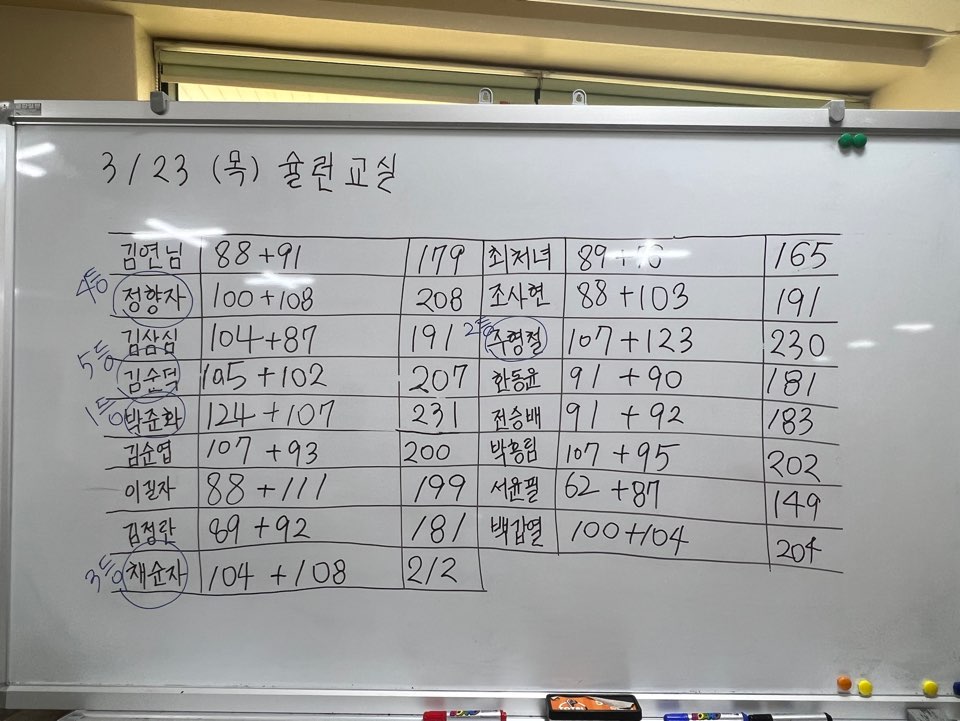 3/23 (목) 슐런교실
김연님 88+91 179 최처녀 89+76 165
4등 정향자 100+108 208 조사현 88+103 191
김삼심 104+87 191 2등 주형철 107+123 230
5등 김순덕 105+102 207 한동윤 91+90 181
1등 박준화 124+107 231 전승배 91+92 183
김순엽 107+93 200 박흥림 107+95 202
이길자 88+111 199 서윤필 62+87 149
김정란 89+92 181 백갑열 100+104 204
3등 채순자 104+108 212